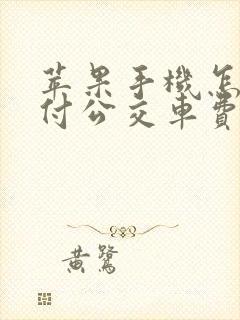 苹果手機怎
付公交車費
黄鷺